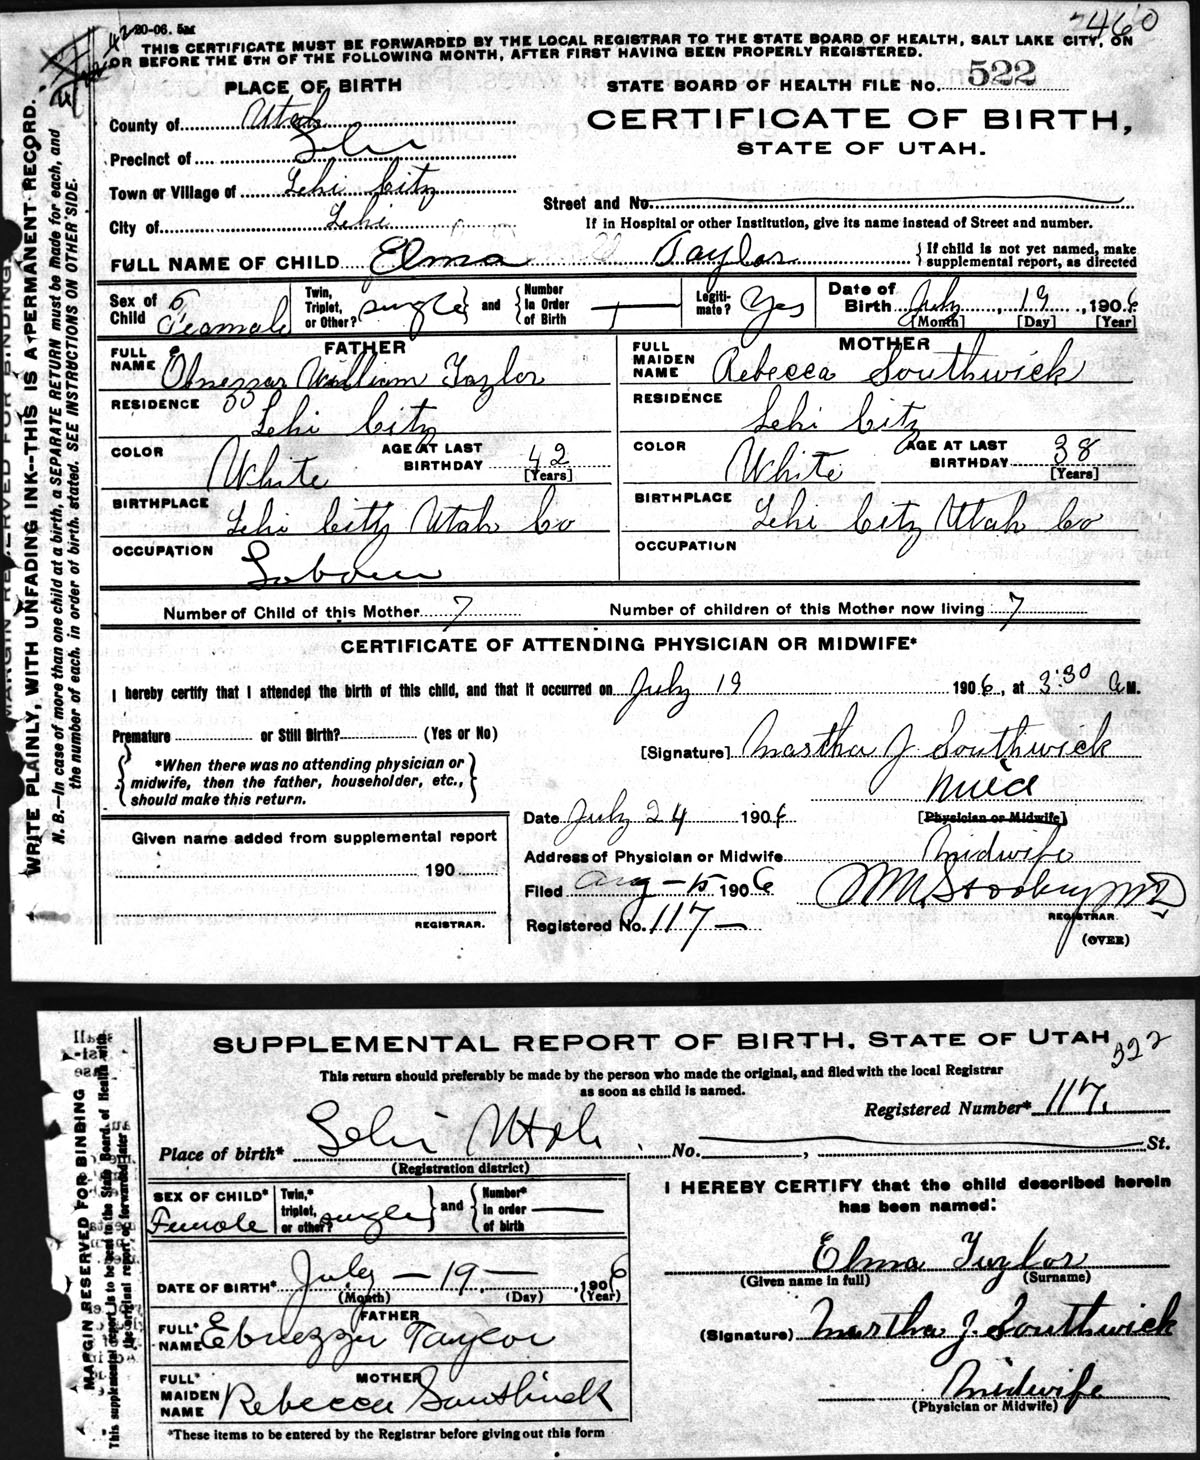 2460
20-06. 5M
THIS CERTIFICATE MUST BE FORWARDED BY THE LOCAL REGISTRAR TO THE STATE BOARD OF HEALTH, SALT LAKE CITY, ON
OR BEFORE THE 5TH OF THE FOLLOWING MONTH, AFTER FIRST HAVING BEEN PROPERLY REGISTERED.
PLACE OF BIRTH
STATE BOARD OF HEALTH FILE NO. 522
County of Utah
CERTIFICATE OF BIRTH,
STATE OF UTAH.
Precinct of Lehi
Town or Village of Lehi City
Street and No.
City of Lehi
If in Hospital or other Institution, give its name instead of Street and number.
FULL NAME OF CHILD Elma Taylor { If child is not yet named, make supplemental report, as directed
Sex of Child Feamale Twin, Triplet, or Other? single } and { Number In Order of Birth Legiti-mate? Yes Date of Birth July 19, 1906
[Month] [Day] [Year]
FATHER
MOTHER
FULL NAME Ebnezzar William Taylor
FULL MAIDEN NAME Rebecca Southwick
RESIDENCE Lehi City
RESIDENCE Lehi City
COLOR White AGE AT LAST BIRTHDAY 42 [Years]
COLOR White AGE AT LAST BIRTHDAY 38 [Years]
BIRTHPLACE Lehi City Utah Co
BIRTHPLACE Lehi City Utah Co
OCCUPATION Laborer
OCCUPATION
Number of Child of this Mother 7 Number of children of this Mother now living 7
CERTIFICATE OF ATTENDING PHYSICIAN OR MIDWIFE*
I hereby certify that I attended the birth of this child, and that it occurred on July 19 1906, at 3:30 a M.
Premature or Still Birth? (Yes or No)
[Signature] Martha J. Southwick
{ *When there was no attending physician or midwife, then the father, householder, etc., should make this return. }
[Physician or Midwife]
Date July 24 1906
Given name added from supplemental report
190
REGISTRAR.
Address of Physician or Midwife Midwife
Filed Aug-15 1906
REGISTRAR
Registered No. 117-
(OVER)
MARGIN RESERVED FOR BINDING
WRITE PLAINLY, WITH UNFADING INK--THIS IS A PERMANENT RECORD.
N. B.—In case of more than one child at a birth, a SEPARATE RETURN must be made for each, and
the number of each, in order of birth, stated. SEE INSTRUCTIONS ON OTHER SIDE.
SUPPLEMENTAL REPORT OF BIRTH, STATE OF UTAH 522
This return should preferably be made by the person who made the original, and filed with the local Registrar
as soon as child is named.
Registered Number* 117.
Place of birth* Lehi Utah No. , St.
(Registration district)
SEX OF CHILD* Female Twin,* triplet, or other? single } and { Number* in order of birth
I HEREBY CERTIFY that the child described herein
has been named:
Elma Taylor
(Given name in full) (Surname)
DATE OF BIRTH* July - 19 - , 1906
(Month) (Day) (Year)
FATHER
FULL* NAME Ebnezzer Taylor
(Signature) Martha J. Southwick
MOTHER
FULL* MAIDEN NAME Rebecca Southwick
Midwife
(Physician or Midwife)
*These items to be entered by the Registrar before giving out this form
MARGIN RESERVED FOR BINDING
This supplemental report is to be sent to the State Board of Health with
the original report, or forwarded later